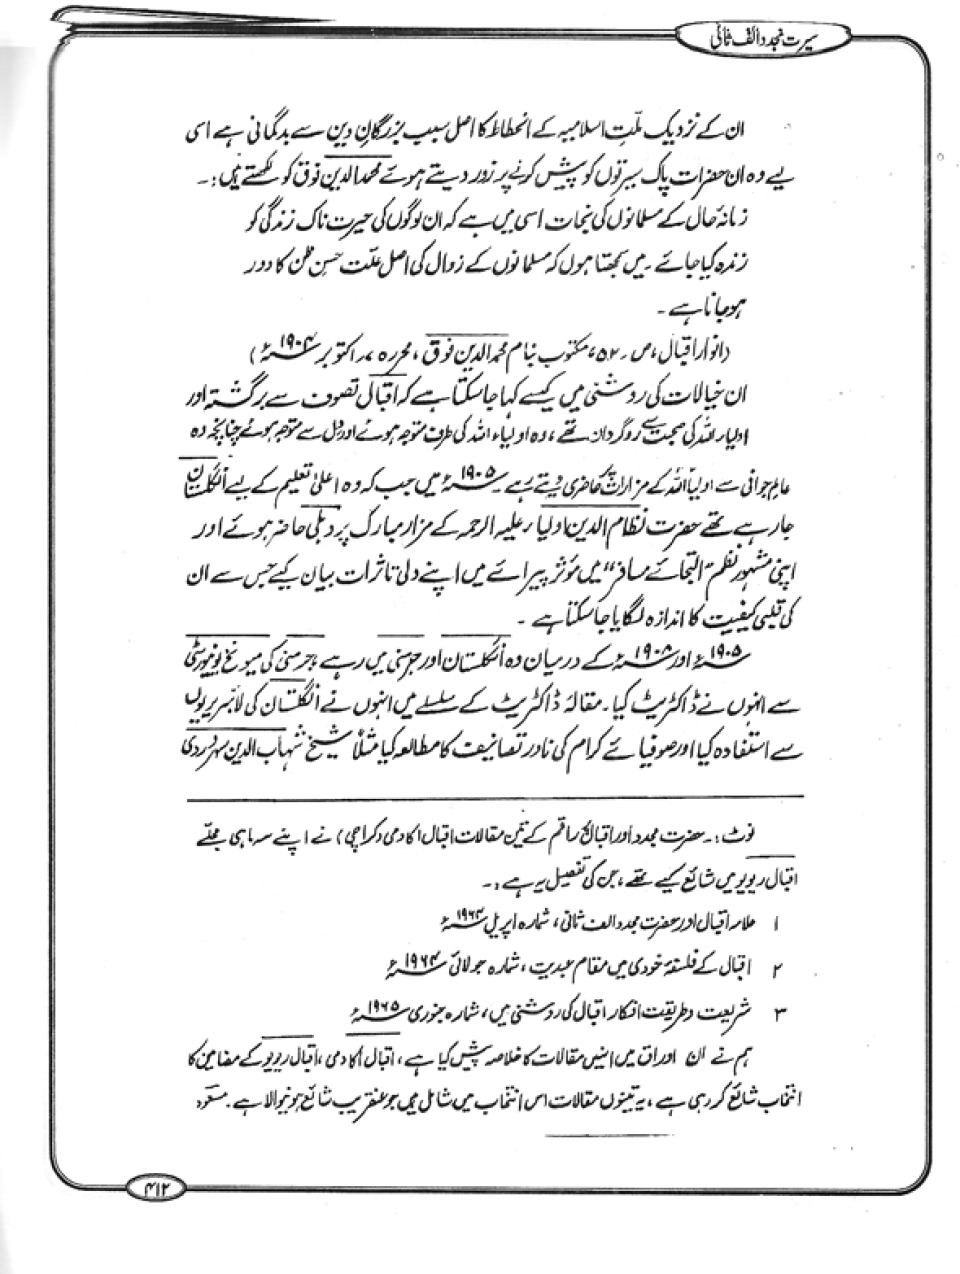 سیرت مجدد الف ثانی
ان کے نزدیک ملّتِ اسلامیہ کے انحطاط کا اصل سبب بزرگانِ دین سے بدگمانی ہے اسی
لیے وہ ان حضرات پاک سیرتوں کو پیش کرنے پر زور دیتے ہوئے محمد الدین فوق کو لکھتے ہیں:۔
زمانۂ حال کے مسلمانوں کی نجات اسی میں ہے کہ ان لوگوں کی حیرت ناک زندگی کو
زندہ کیا جائے۔ میں سمجھتا ہوں کہ مسلمانوں کے زوال کی اصل علّت حسنِ ظن کا دور
ہو جانا ہے۔
(انوارِ اقبال، ص۔ ۵۲، مکتوب بنام محمد الدین فوق، محررہ ۷، اکتوبر ۱۹۰۴ء)
ان خیالات کی روشنی میں کیسے کہا جاسکتا ہے کہ اقبال تصوف سے برگشتہ اور
اولیاء اللہ کی صحبت سے روگردان تھے، وہ اولیاء اللہ کی طرف متوجہ ہوئے اور دل سے متوجہ ہوئے چنانچہ وہ
عالمِ جوانی سے اولیاء اللہ کے مزارات پر حاضری دیتے رہے۔ ۱۹۰۵ء میں جب کہ وہ اعلیٰ تعلیم کے لیے انگلستان
جا رہے تھے حضرت نظام الدین اولیاء علیہ الرحمہ کے مزار مبارک پر دہلی حاضر ہوئے اور
اپنی مشہور نظم "التجائے مسافر" میں مؤثر پیرائے میں اپنے دلی تاثرات بیان کیے جس سے ان
کی قلبی کیفیت کا اندازہ لگایا جاسکتا ہے۔
۱۹۰۵ء اور ۱۹۰۸ء کے درمیان وہ انگلستان اور جرمنی میں رہے، جرمنی کی میونخ یونیورسٹی
سے انہوں نے ڈاکٹریٹ کیا۔ مقالۂ ڈاکٹریٹ کے سلسلے میں انہوں نے انگلستان کی لائبریریوں
سے استفادہ کیا اور صوفیائے کرام کی نادر تصانیف کا مطالعہ کیا مثلاً شیخ شہاب الدین سہروردی
نوٹ:۔ حضرت مجدد اور اقبال پر راقم کے تین مقالات اقبال اکادمی (کراچی) نے اپنے سہ ماہی مجلے
اقبال ریویو میں شائع کیے تھے، جن کی تفصیل یہ ہے:۔
۱ علامہ اقبال اور حضرت مجدد الف ثانی، شمارہ اپریل ۱۹۶۴ء
۲ اقبال کے فلسفۂ خودی میں مقام عبدیت، شمارہ جولائی ۱۹۶۴ء
۳ شریعت و طریقت افکار اقبال کی روشنی میں، شمارہ جنوری ۱۹۶۵ء
ہم نے ان اوراق میں انہیں مقالات کا خلاصہ پیش کیا ہے، اقبال اکادمی، اقبال ریویو کے مضامین کا
انتخاب شائع کر رہی ہے، یہ تینوں مقالات اس انتخاب میں شامل ہیں جو عنقریب شائع ہونیوالا ہے۔ مسعود
۴۱۲